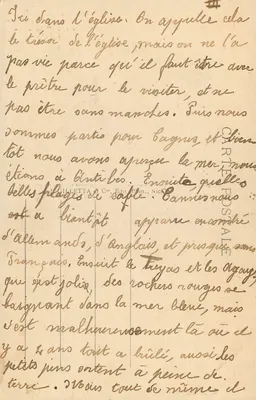 III
Ici dans l'église. On appelle cela
le trésor de l'église, mais on ne l'a
pas vu parce qu'il faut être avec
le prêtre pour le visiter, et ne
pas être sans manches. Puis nous
sommes partis pour Cagnes, et bien
tôt nous avons aperçu la mer, nous
étions à Antibes. Ensuite quelles
belles plages de sable. Cannes nous
est bientôt apparue
d'allemands, d'Anglais, et presque sans
Français. Ensuite le Trayas et les Agays,
que c'est joli, des rochers rouges se
baignant dans la mer bleue, mais
c'est malheureusement là où il
y a 4 ans tout a brûlé, aussi les
petits pins sortent à peine de
terre. Mais tout de même il
CARTE POSTALE